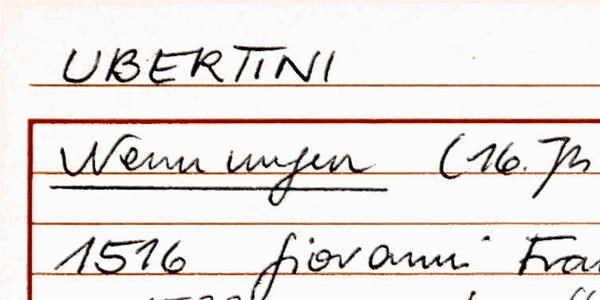 UBERTINI
Nennungen (16. Jh
1516 Giovanni Fra